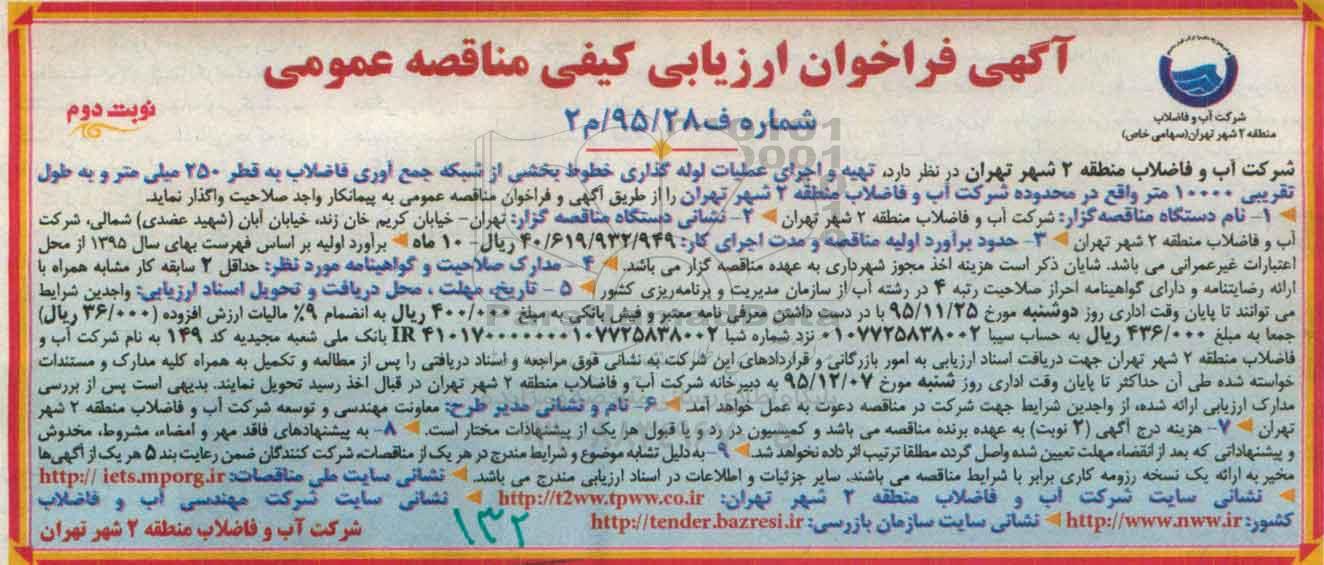 آگهی فراخوان ارزیابی کیفی مناقصه عمومی
شرکت آب و فاضلاب
منطقه ۲ شهر تهران (سهامی خاص)
نوبت دوم
شماره ف۹۵/۲۸/م۲
شرکت آب و فاضلاب منطقه ۲ شهر تهران در نظر دارد، تهیه و اجرای عملیات لوله گذاری خطوط بخشی از شبکه جمع آوری فاضلاب به قطر ۲۵۰ میلی متر و به طول
تقریبی ۱۰۰۰۰ متر واقع در محدوده شرکت آب و فاضلاب منطقه ۲ شهر تهران را از طریق آگهی و فراخوان مناقصه عمومی به پیمانکار واجد صلاحیت واگذار نماید.
۱- نام دستگاه مناقصه گزار: شرکت آب و فاضلاب منطقه ۲ شهر تهران ۲- نشانی دستگاه مناقصه گزار: تهران - خیابان کریم خان زند، خیابان آبان (شهید عضدی) شمالی، شرکت
آب و فاضلاب منطقه ۲ شهر تهران ۳- حدود برآورد اولیه مناقصه و مدت اجرای کار: ۴۰/۶۱۹/۹۳۲/۹۴۹ ریال- ۱۰ ماه برآورد اولیه بر اساس فهرست بهای سال ۱۳۹۵ از محل
اعتبارات غیرعمرانی می باشد. شایان ذکر است هزینه اخذ مجوز شهرداری به عهده مناقصه گزار می باشد. ۴- مدارک صلاحیت و گواهینامه مورد نظر: حداقل ۲ سابقه کار مشابه همراه با
ارائه رضایتنامه و دارای گواهینامه احراز صلاحیت رتبه ۴ در رشته آب از سازمان مدیریت و برنامه ریزی کشور ۵ - تاریخ، مهلت ، محل دریافت و تحویل اسناد ارزیابی: واجدین شرایط
می توانند تا پایان وقت اداری روز دوشنبه مورخ ۹۵/۱۱/۲۵ با در دست داشتن معرفی نامه معتبر و فیش بانکی به مبلغ ۴۰۰/۰۰۰ ریال به انضمام ۹% مالیات ارزش افزوده (۳۶/۰۰۰ ریال)
جمعا به مبلغ ۴۳۶/۰۰۰ ریال به حساب سیبا ۰۱۰۷۷۲۵۸۳۸۰۰۲ نزد شماره شبا IR ۴۱۰۱۷۰۰۰۰۰۰۰۱۰۷۷۲۵۸۳۸۰۰۲ بانک ملی شعبه مجیدیه کد ۱۴۹ به نام شرکت آب و
فاضلاب منطقه ۲ شهر تهران جهت دریافت اسناد ارزیابی به امور بازرگانی و قراردادهای این شرکت به نشانی فوق مراجعه و اسناد دریافتی را پس از مطالعه و تکمیل به همراه کلیه مدارک و مستندات
خواسته شده طی آن حداکثر تا پایان وقت اداری روز شنبه مورخ ۹۵/۱۲/۰۷ به دبیرخانه شرکت آب و فاضلاب منطقه ۲ شهر تهران در قبال اخذ رسید تحویل نمایند. بدیهی است پس از بررسی
مدارک ارزیابی ارائه شده، از واجدین شرایط جهت شرکت در مناقصه دعوت به عمل خواهد آمد. ۶- نام و نشانی مدیر طرح: معاونت مهندسی و توسعه شرکت آب و فاضلاب منطقه ۲ شهر
تهران ۷- هزینه درج آگهی (۲ نوبت) به عهده برنده مناقصه می باشد و کمیسیون در رد و یا قبول هر یک از پیشنهادات مختار است. ۸- به پیشنهادهای فاقد مهر و امضاء، مشروط، مخدوش
و پیشنهاداتی که بعد از انقضاء مهلت تعیین شده واصل گردد، مطلقا ترتیب اثر داده نخواهد شد. ۹- به دلیل تشابه موضوع و شرایط مندرج در هر یک از مناقصات، شرکت کنندگان ضمن رعایت بند ۵ هر یک از آگهی ها
مخیر به ارائه یک نسخه رزومه کاری برابر با شرایط مناقصه می باشند. سایر جزئیات و اطلاعات در اسناد ارزیابی مندرج می باشد. نشانی سایت ملی مناقصات: http:// iets.mporg.ir
نشانی سایت شرکت آب و فاضلاب منطقه ۲ شهر تهران: http://t2ww.tpww.co.ir نشانی سایت شرکت مهندسی آب و فاضلاب
کشور: http://www.nww.ir نشانی سایت سازمان بازرسی: http://tender.bazresi.ir
شرکت آب و فاضلاب منطقه ۲ شهر تهران
۱۳۲